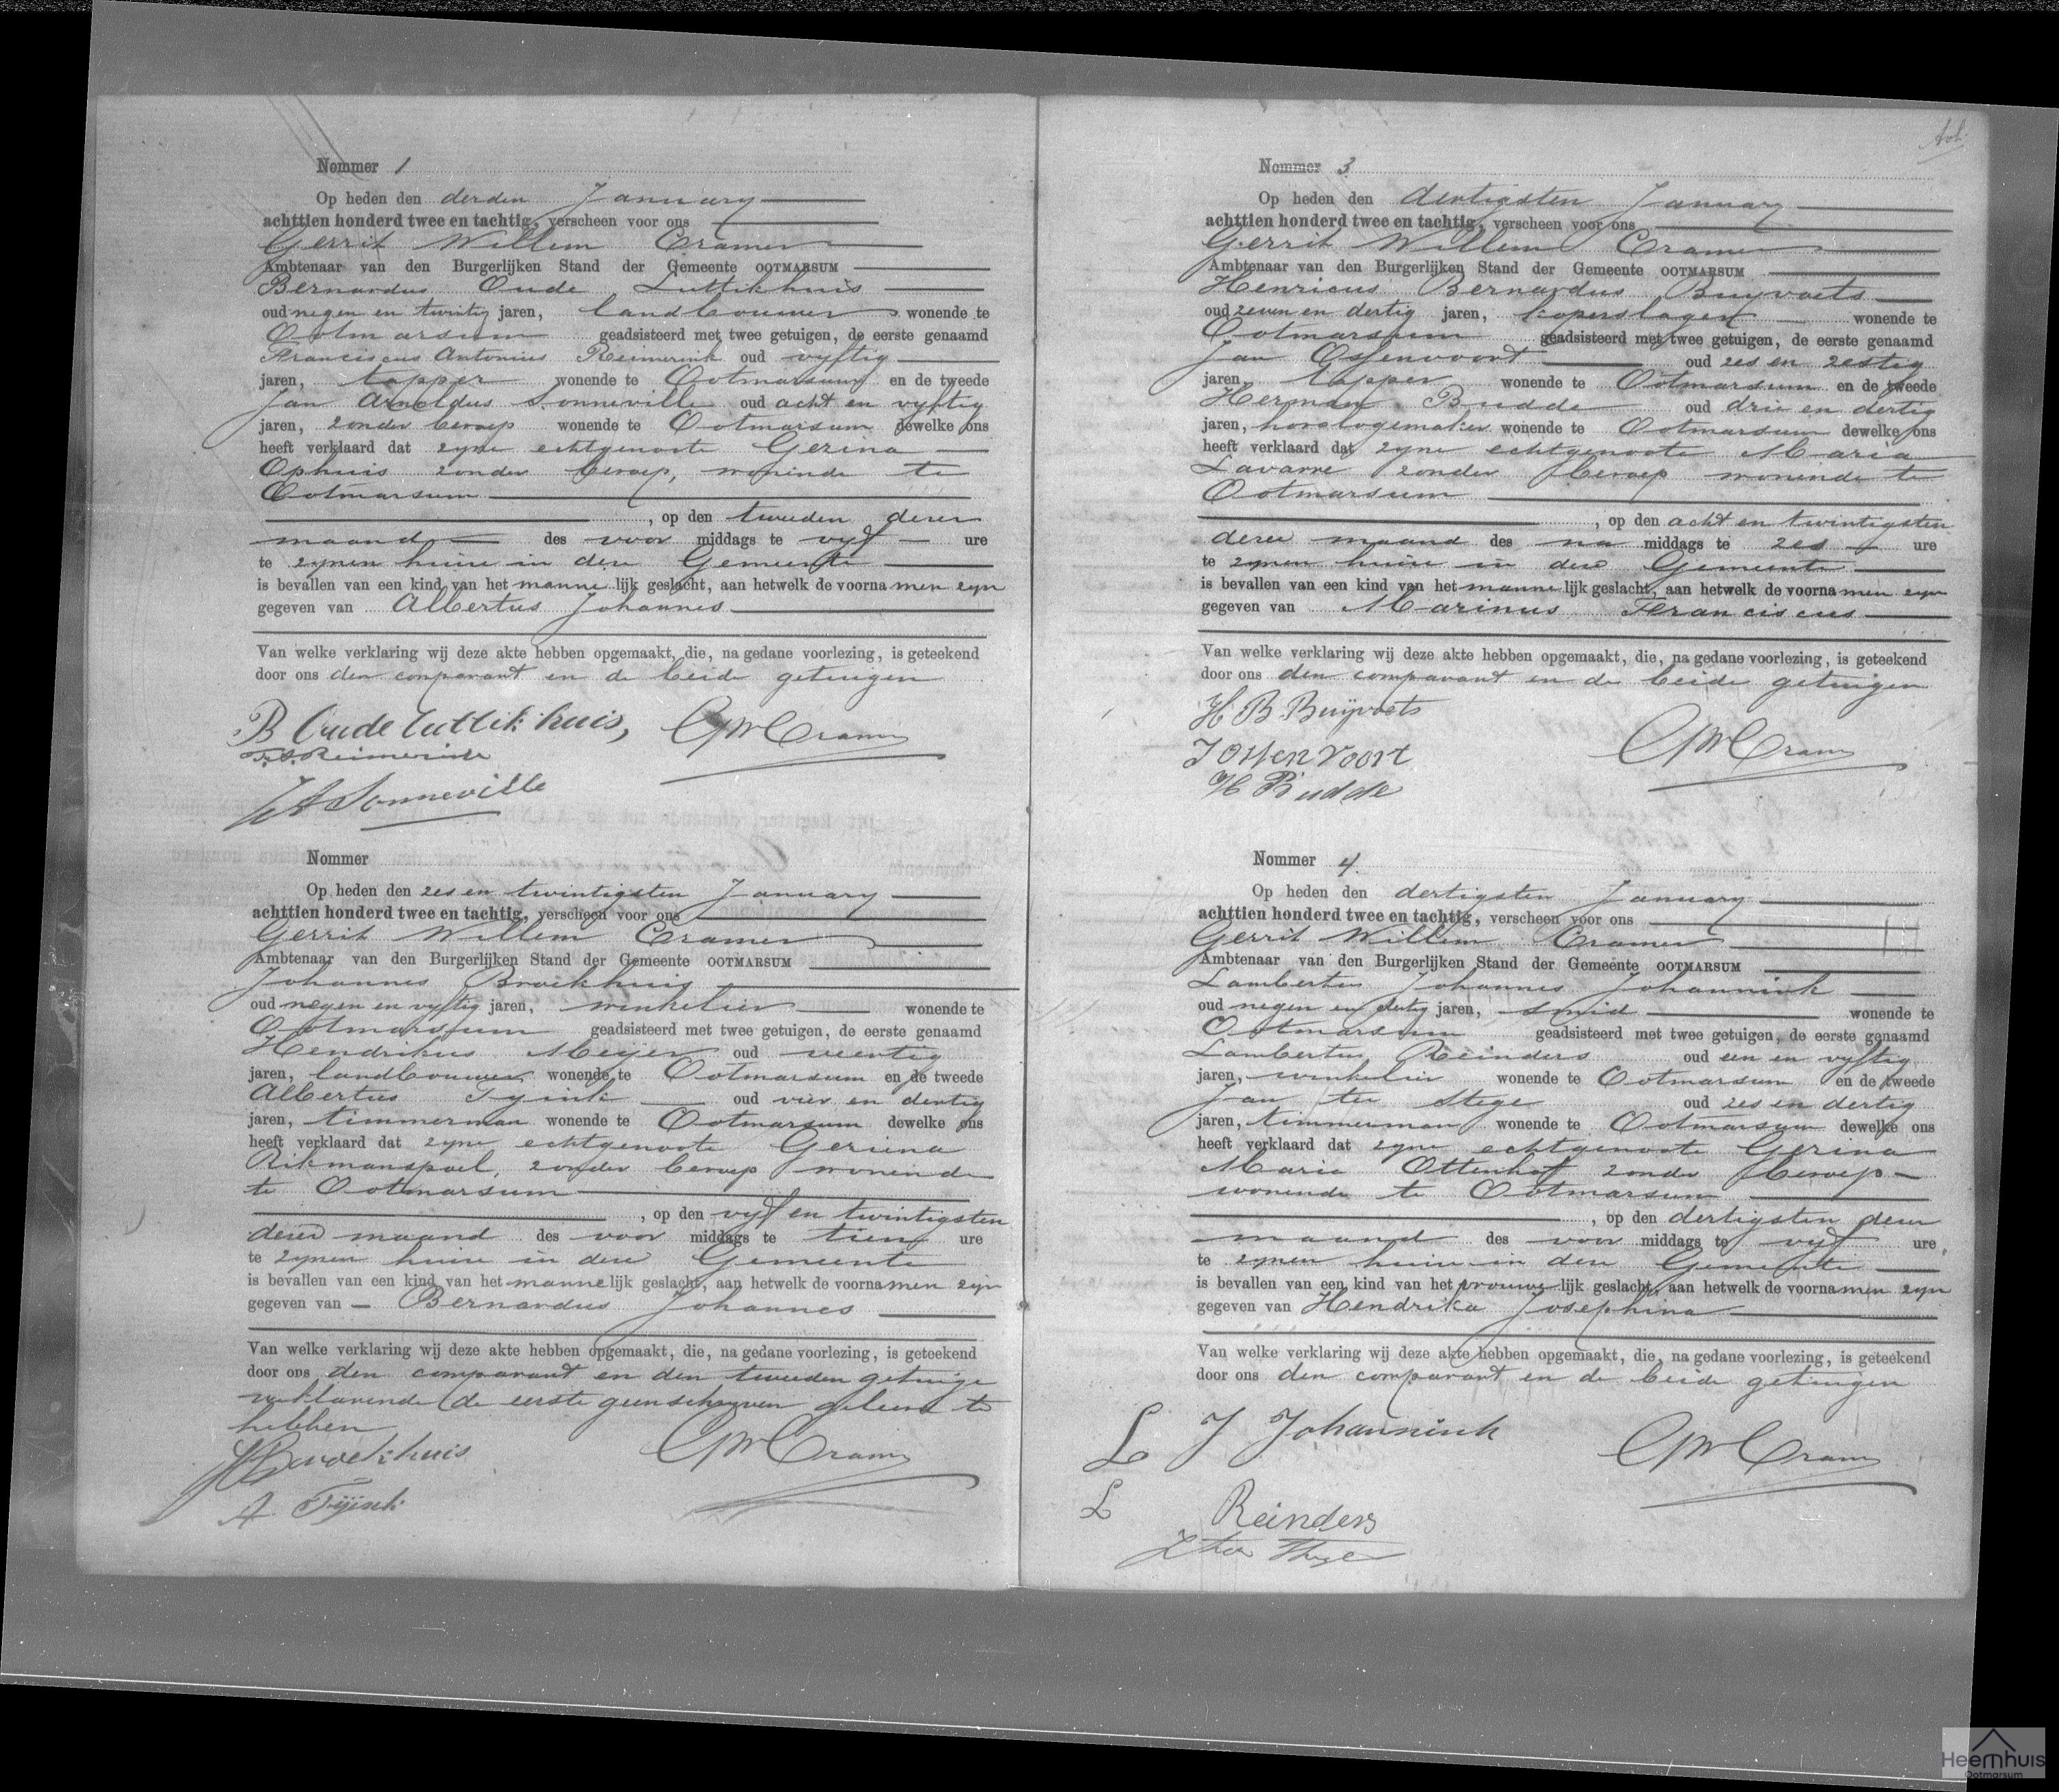 Nommer 1
Op heden den derden January
achttien honderd twee en tachtig, verscheen voor ons
Gerrit Willem Cramer
Ambtenaar van den Burgerlijken Stand der Gemeente OOTMARSUM
Bernardus Oude Luttikhuis
oud negen en twintig jaren, landbouwer wonende te
Ootmarsum geadsisteerd met twee getuigen, de eerste genaamd
Franciscus Antonius Reimerink oud vyftig
jaren, tapper wonende te Ootmarsum en de tweede
Jan Arnoldus Sonneville oud acht en vyftig
jaren, zonder beroep wonende te Ootmarsum dewelke ons
heeft verklaard dat zyne echtgenoote Gezina
Ophuis zonder beroep, wonende te
Ootmarsum
, op den tweeden dezer
maand des voor middags te vyf ure
te zynen huize in deze Gemeente
is bevallen van een kind van het mannelijk geslacht, aan hetwelk de voornamen zyn
gegeven van Albertus Johannes
Van welke verklaring wij deze akte hebben opgemaakt, die, na gedane voorlezing, is geteekend
door ons den comparant en de beide getuigen
B Oude Luttikhuis, GWCramer
F.A. Reimerink
JA Sonneville
Nommer
Op heden den zes en twintigsten January
achttien honderd twee en tachtig, verscheen voor ons
Gerrit Willem Cramer
Ambtenaar van den Burgerlijken Stand der Gemeente OOTMARSUM
Johannes Broekhuis
oud negen en vyftig jaren, winkelier wonende te
Ootmarsum geadsisteerd met twee getuigen, de eerste genaamd
Hendrikus Meijer oud veertig
jaren, landbouwer wonende te Ootmarsum en de tweede
Albertus Tyink oud vier en dertig
jaren, timmerman wonende te Ootmarsum dewelke ons
heeft verklaard dat zyne echtgenoote Geziena
Rikmanspoel, zonder beroep wonende
te Ootmarsum
, op den vyf en twintigsten
dezer maand des voor middags te tien ure
te zynen huize in deze Gemeente
is bevallen van een kind van het mannelijk geslacht, aan hetwelk de voornamen zyn
gegeven van Bernardus Johannes
Van welke verklaring wij deze akte hebben opgemaakt, die, na gedane voorlezing, is geteekend
door ons den comparant en den tweeden getuige
verklarende de eerste geen schryven geleerd te
hebben
JBroekhuis GWCramer
A. Tijink
Nommer 3
Op heden den dertigsten January
achttien honderd twee en tachtig, verscheen voor ons
Gerrit Willem Cramer
Ambtenaar van den Burgerlijken Stand der Gemeente OOTMARSUM
Henricus Bernardus Buyvoets
oud zeven en dertig jaren, koperslager wonende te
Ootmarsum geadsisteerd met twee getuigen, de eerste genaamd
Jan Ossenvoort oud zes en zestig
jaren, tapper wonende te Ootmarsum en de tweede
Herman Budde oud drie en dertig
jaren, horologemaker wonende te Ootmarsum dewelke ons
heeft verklaard dat zyne echtgenoote Maria
Lavarre zonder beroep wonende te
Ootmarsum
, op den acht en twintigsten
dezer maand des na middags te zes ure
te zynen huize in deze Gemeente
is bevallen van een kind van het mannelijk geslacht, aan hetwelk de voornamen zyn
gegeven van Marinus Franciscus
Van welke verklaring wij deze akte hebben opgemaakt, die, na gedane voorlezing, is geteekend
door ons den comparant en de beide getuigen
H B Buijvoets
J Ossenvoort GWCramer
H Budde
Nommer 4.
Op heden den dertigsten January
achttien honderd twee en tachtig, verscheen voor ons
Gerrit Willem Cramer
Ambtenaar van den Burgerlijken Stand der Gemeente OOTMARSUM
Lambertus Johannes Johannink
oud negen en dertig jaren, smid wonende te
Ootmarsum geadsisteerd met twee getuigen, de eerste genaamd
Lambertus Reinders oud een en vyftig
jaren, winkelier wonende te Ootmarsum en de tweede
Jan ter Stege oud zes en dertig
jaren, timmerman wonende te Ootmarsum dewelke ons
heeft verklaard dat zyne echtgenoote Gezina
Maria Ottenhof zonder beroep
wonende te Ootmarsum
, op den dertigsten dezer
maand des voor middags te vyf ure
te zynen huize in deze Gemeente
is bevallen van een kind van het vrouwelijk geslacht, aan hetwelk de voornamen zyn
gegeven van Hendrika Josephina
Van welke verklaring wij deze akte hebben opgemaakt, die, na gedane voorlezing, is geteekend
door ons den comparant en de beide getuigen
L J Johannink GWCramer
L Reinders
J ter Stege
Heemhuis
Ootmarsum